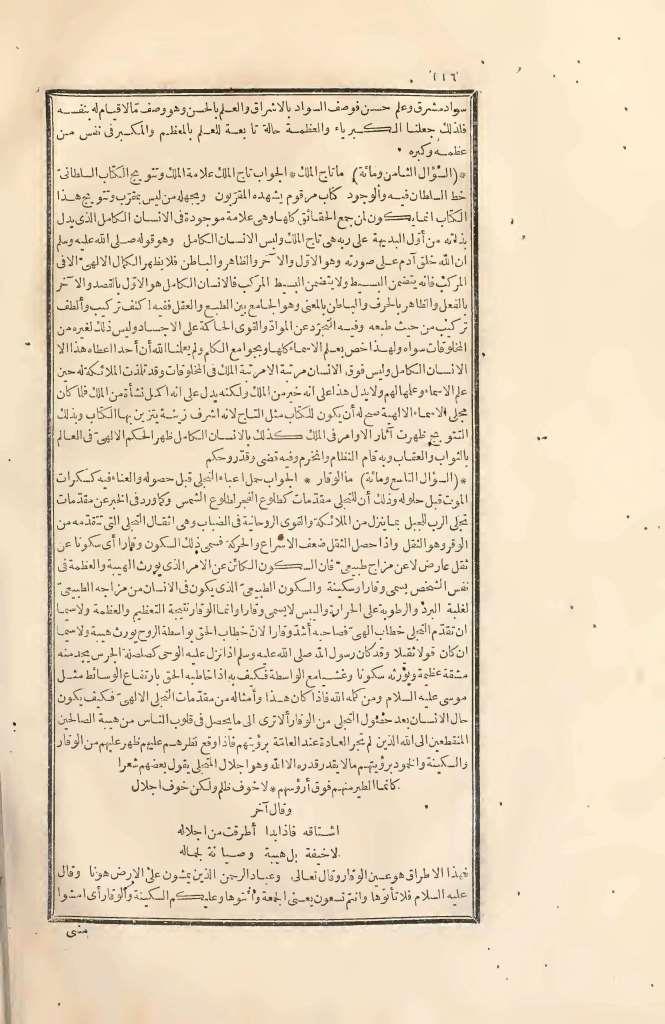 ١١٦
سواد مشرق وعلم حسن فوصف السواد بالاشراق والعلم بالحسن وهو وصف مالا قيام له بنفسه
فلذلك جعلنا الكبرياء والعظمة حالة تابعة للعلم بالمعظم والمكبر فى نفس من
عظمه وكبره
*(السؤال الثامن ومائة) ما تاج الملك* الجواب تاج الملك علامة الملك وتتويج الكتاب السلطانى
خط السلطان فيه والوجود كتاب مرقوم يشهده المقربون ويجهله من ليس بمقرب وتتويج هذا
الكتاب انما يكون لمن جمع الحقائق كلها وهى علامة موجوده فى الانسان الكامل الذى يدل
بذاته من أول البديهة على ربه هى تاج الملك وليس الانسان الكامل وهو قوله صلى الله عليه وسلم
ان الله خلق آدم على صورته وهو الاول والآخر والظاهر والباطن فلا يظهر الكمال الالهى الا فى
المركب فانه يتضمن البسيط ولا يتضمن البسيط المركب فالانسان الكامل هو الاول بالقصد والآخر
بالفعل والظاهر بالحرف والباطن بالمعنى وهو الجامع بين الطبع والعقل ففيه اكثف تركيب وألطف
تركيب من حيث طبعه وفيه التجرّد عن الموادّ والقوى الحاكمة على الاجساد وليس ذلك لغيره من
المخلوقات سواه ولهذا خص بعلم الاسماء كلها وبجوامع الكلم ولم يعلمنا الله أن أحدا اعطاه هذا الا
الانسان الكامل وليس فوق الانسان مرتبة الا مرتبة الملك فى المخلوقات وقد تلمذت الملائكة له حين
علم الاسماء وعلمها لهم ولا يدل هذا على انه خير من الملك ولكنه يدل على انه اكمل نشأة من الملك فلما كان
مجلى الاسماء الالهية صح له أن يكون للكتاب مثل التاج لانه اشرف زينة يتزين بها الكتاب وبذلك
التتويج ظهرت آثار الاوامر فى الملك كذلك بالانسان الكامل ظهر الحكم الالهى فى العالم
بالثواب والعقاب وبه قام النظام وانخرم وفيه قضى وقدر وحكم
*(السؤال التاسع ومائة) ما الوقار * الجواب حمل اعباء التجلى قبل حصوله والعناء فيه كسكرات
الموت قبل حلوله وذلك أن للتجلى مقدمات كطلوع الفجر لطلوع الشمس وكما ورد فى الخبر عن مقدمات
تجلى الرب للجبل بما ينزل من الملائكة والقوى الروحانية فى الضباب وهى اثقال التجلى التى تتقدمه من
الوقر وهو الثقل واذا حصل الثقل ضعف الاسراع والحركة فسمى ذلك السكون وقارا أى سكونا عن
ثقل عارض لا عن مزاج طبيعى فان السكون الكائن عن الامر الذى يورث الهيبة والعظمة فى
نفس الشخص يسمى وقارا وسكينة والسكون الطبيعى الذى يكون فى الانسان من مزاجه الطبيعى
لغلبة البرد والرطوبة على الحرارة واليبس لا يسمى وقارا وانما الوقار نتيجة التعظيم والعظمة ولا سيما
ان تقدّم التجلى خطاب الهى فصاحبه أشدّ وقارا لانّ خطاب الحق بواسطة الروح يورث هيبة ولا سيما
ان كان قولا ثقيلا وقد كان رسول الله صلى الله عليه وسلم اذا نزل عليه الوحى كصلصلة الجرس يجد منه
مشقة عظيمة ويورثه سكونا وغشيا مع الواسطة فكيف به اذا خاطبه الحق بارتفاع الوسائط مثل
موسى عليه السلام ومن كلمه الله فاذا كان هذا وأمثاله من مقدمات التجلى الالهى فكيف يكون
حال الانسان بعد حصول التجلى من الوقار ألا ترى الى ما يحصل فى قلوب الناس من هيبة الصالحين
المنقطعين الى الله الذين لم تجر العادة عند العامّة برؤيتهم فاذا وقع نظرهم عليهم ظهر عليهم من الوقار
والسكينة والخمود برؤيتهم مالا يقدر قدره الا الله وهو اجلال المتجلى يقول بعضهم شعرا
كانما الطير منهم فوق أرؤسهم * لا خوف ظلم ولكن خوف اجلال
وقال آخر
اشتاقه فاذا بدا أطرقت من اجلاله
لا خيفة بل هيبة وصيانة لجماله
فهذا الاطراق هو عين الوقار وقال تعالى وعباد الرحمن الذين يمشون على الارض هونا وقال
عليه السلام فلا تأتوها وانتم تسعون يعنى الجمعة وأتوها وعليكم السكينة والوقار أى امشوا
مشى